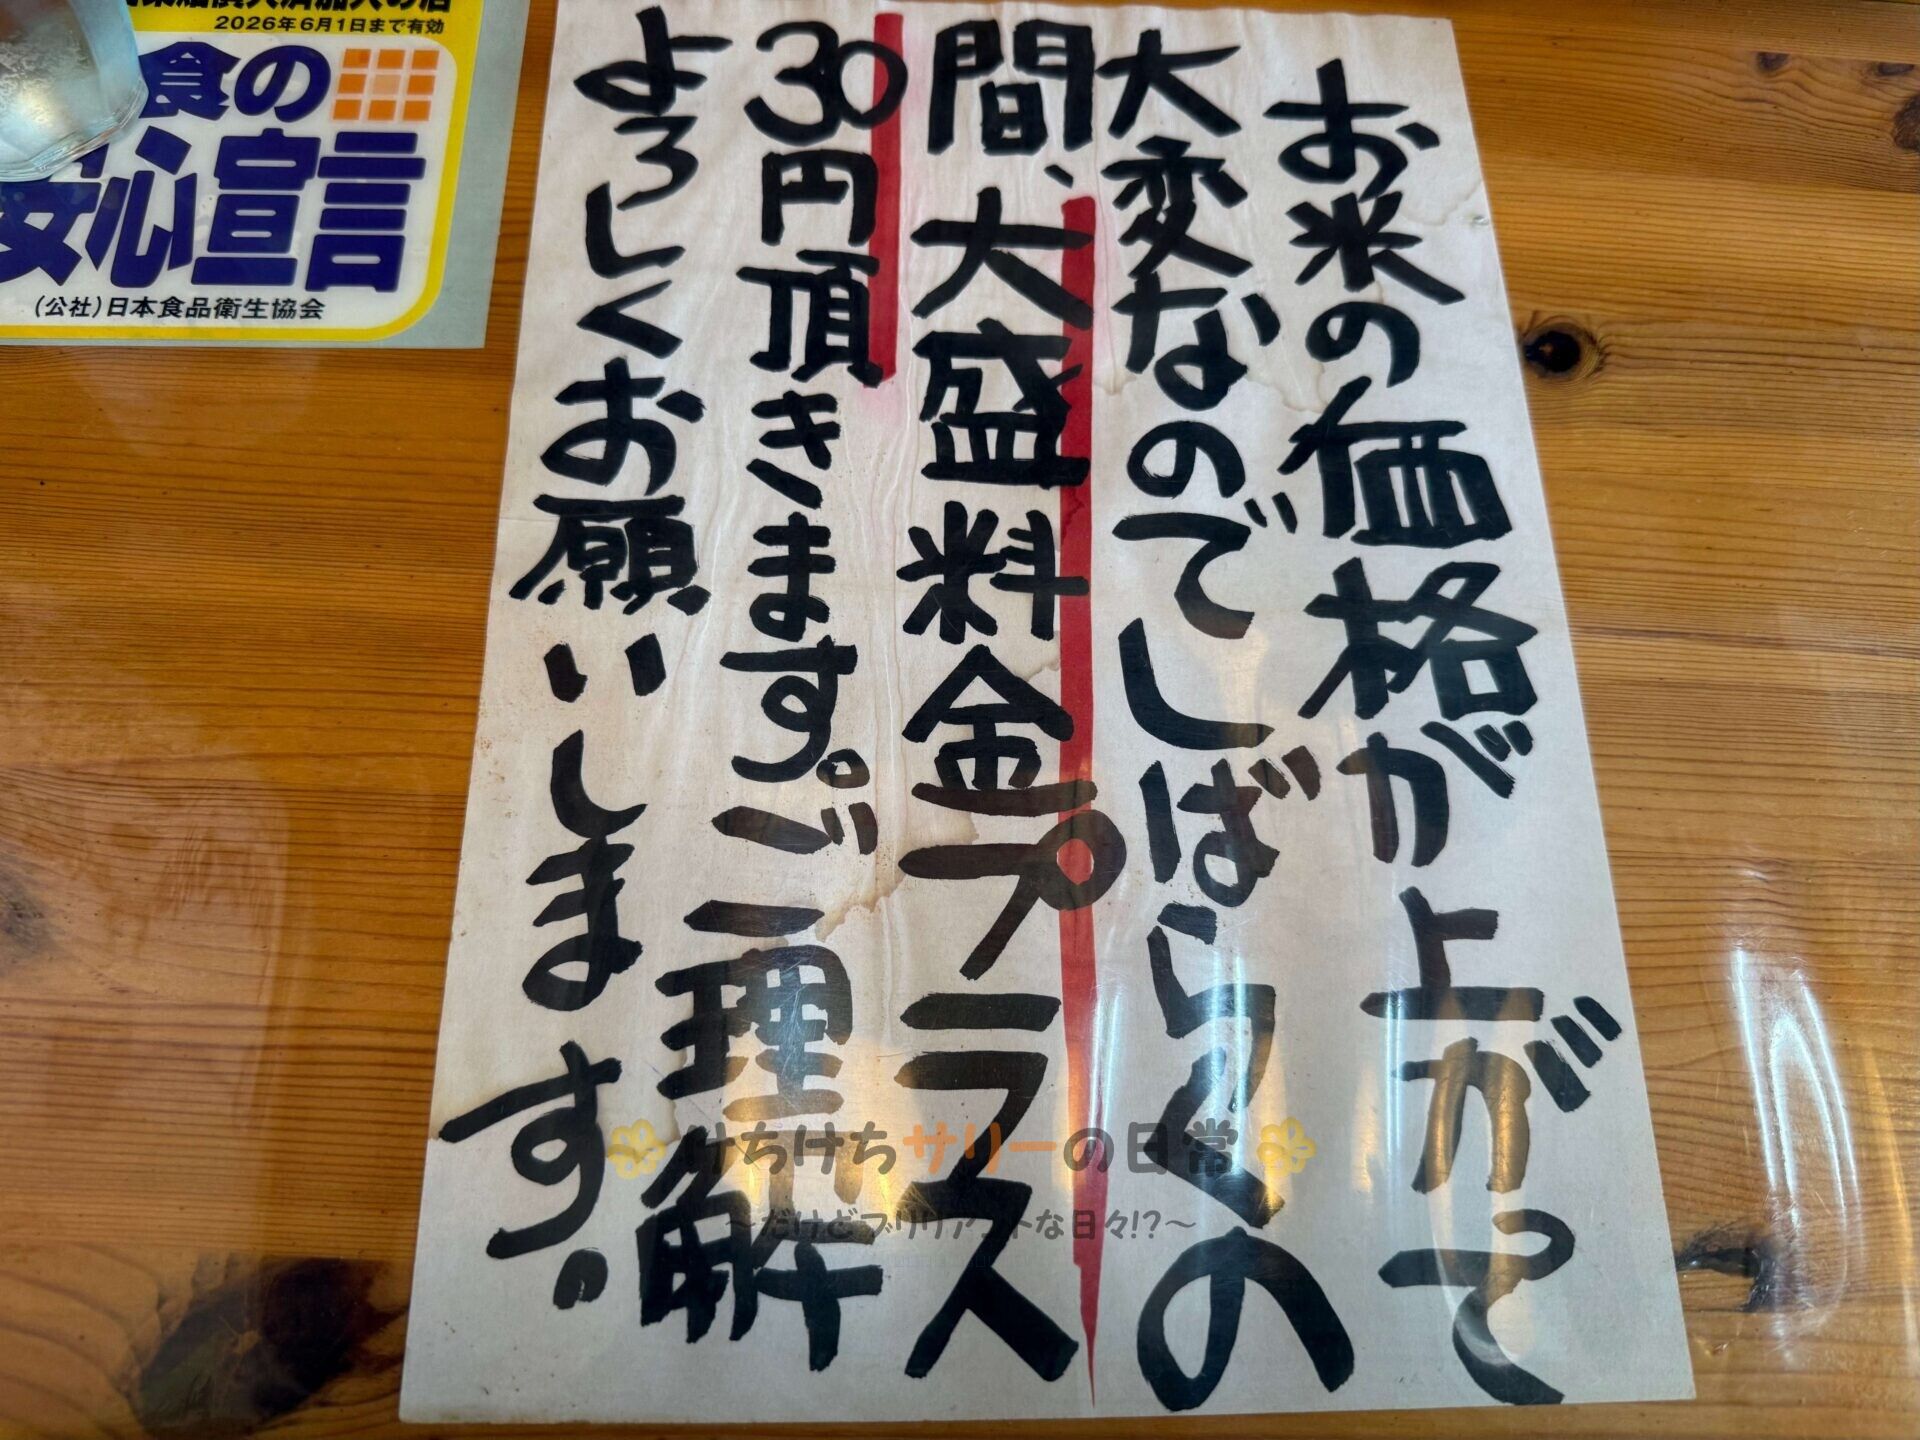 お米の価格が上がって
大変なのでしばらくの
間、大盛料金プラス
30円頂きます。ご理解
よろしくお願いします。
2026年6月1日まで有効
食の
安心宣言
(公社)日本食品衛生協会
けちけちサリーの日常
〜だけどブリリアントな日々!?〜